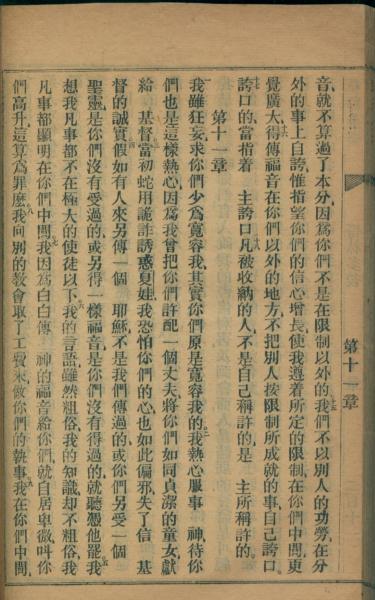 音、就不算過了本分、因爲你們不是在限制以外的、我們不以別人的功勞、在分
外的事上自誇、惟指望你們的信心增長、使我遵着所定的限制、在你們中間、更
覺廣大、得傳福音在你們以外的地方、不把別人按限制所成就的事、自己誇口、
誇口的、當指着 主誇口、凡被收納的人、不是自己稱許的、是 主所稱許的、
第十一章
我雖狂妄、求你們少爲寬容我、其實你們原是寬容我的、我熱心服事 神、待你
們也是這樣熱心、因爲我曾把你們許配一個丈夫、將你們如同貞潔的童女、獻
給 基督、當初蛇用詭詐誘惑夏娃、我恐怕你們的心也如此偏邪、失了信 基
督的誠實、假如有人來另傳一個 耶穌、不是我們傳過的、或你們另受一個
聖靈、是你們沒有受過的、或另得一樣福音、是你們沒有得過的、就聽憑他罷、我
想我凡事都不在極大的使徒以下、我的言語、雖然粗俗、我的知識、却不粗俗、我
凡事都顯明在你們中間、我因爲白白傳 神的福音給你們、就自居卑微、叫你
們高升、這算爲罪麽、我向別的敎會取了工費、來做你們的執事、我在你們中間、
第十一章